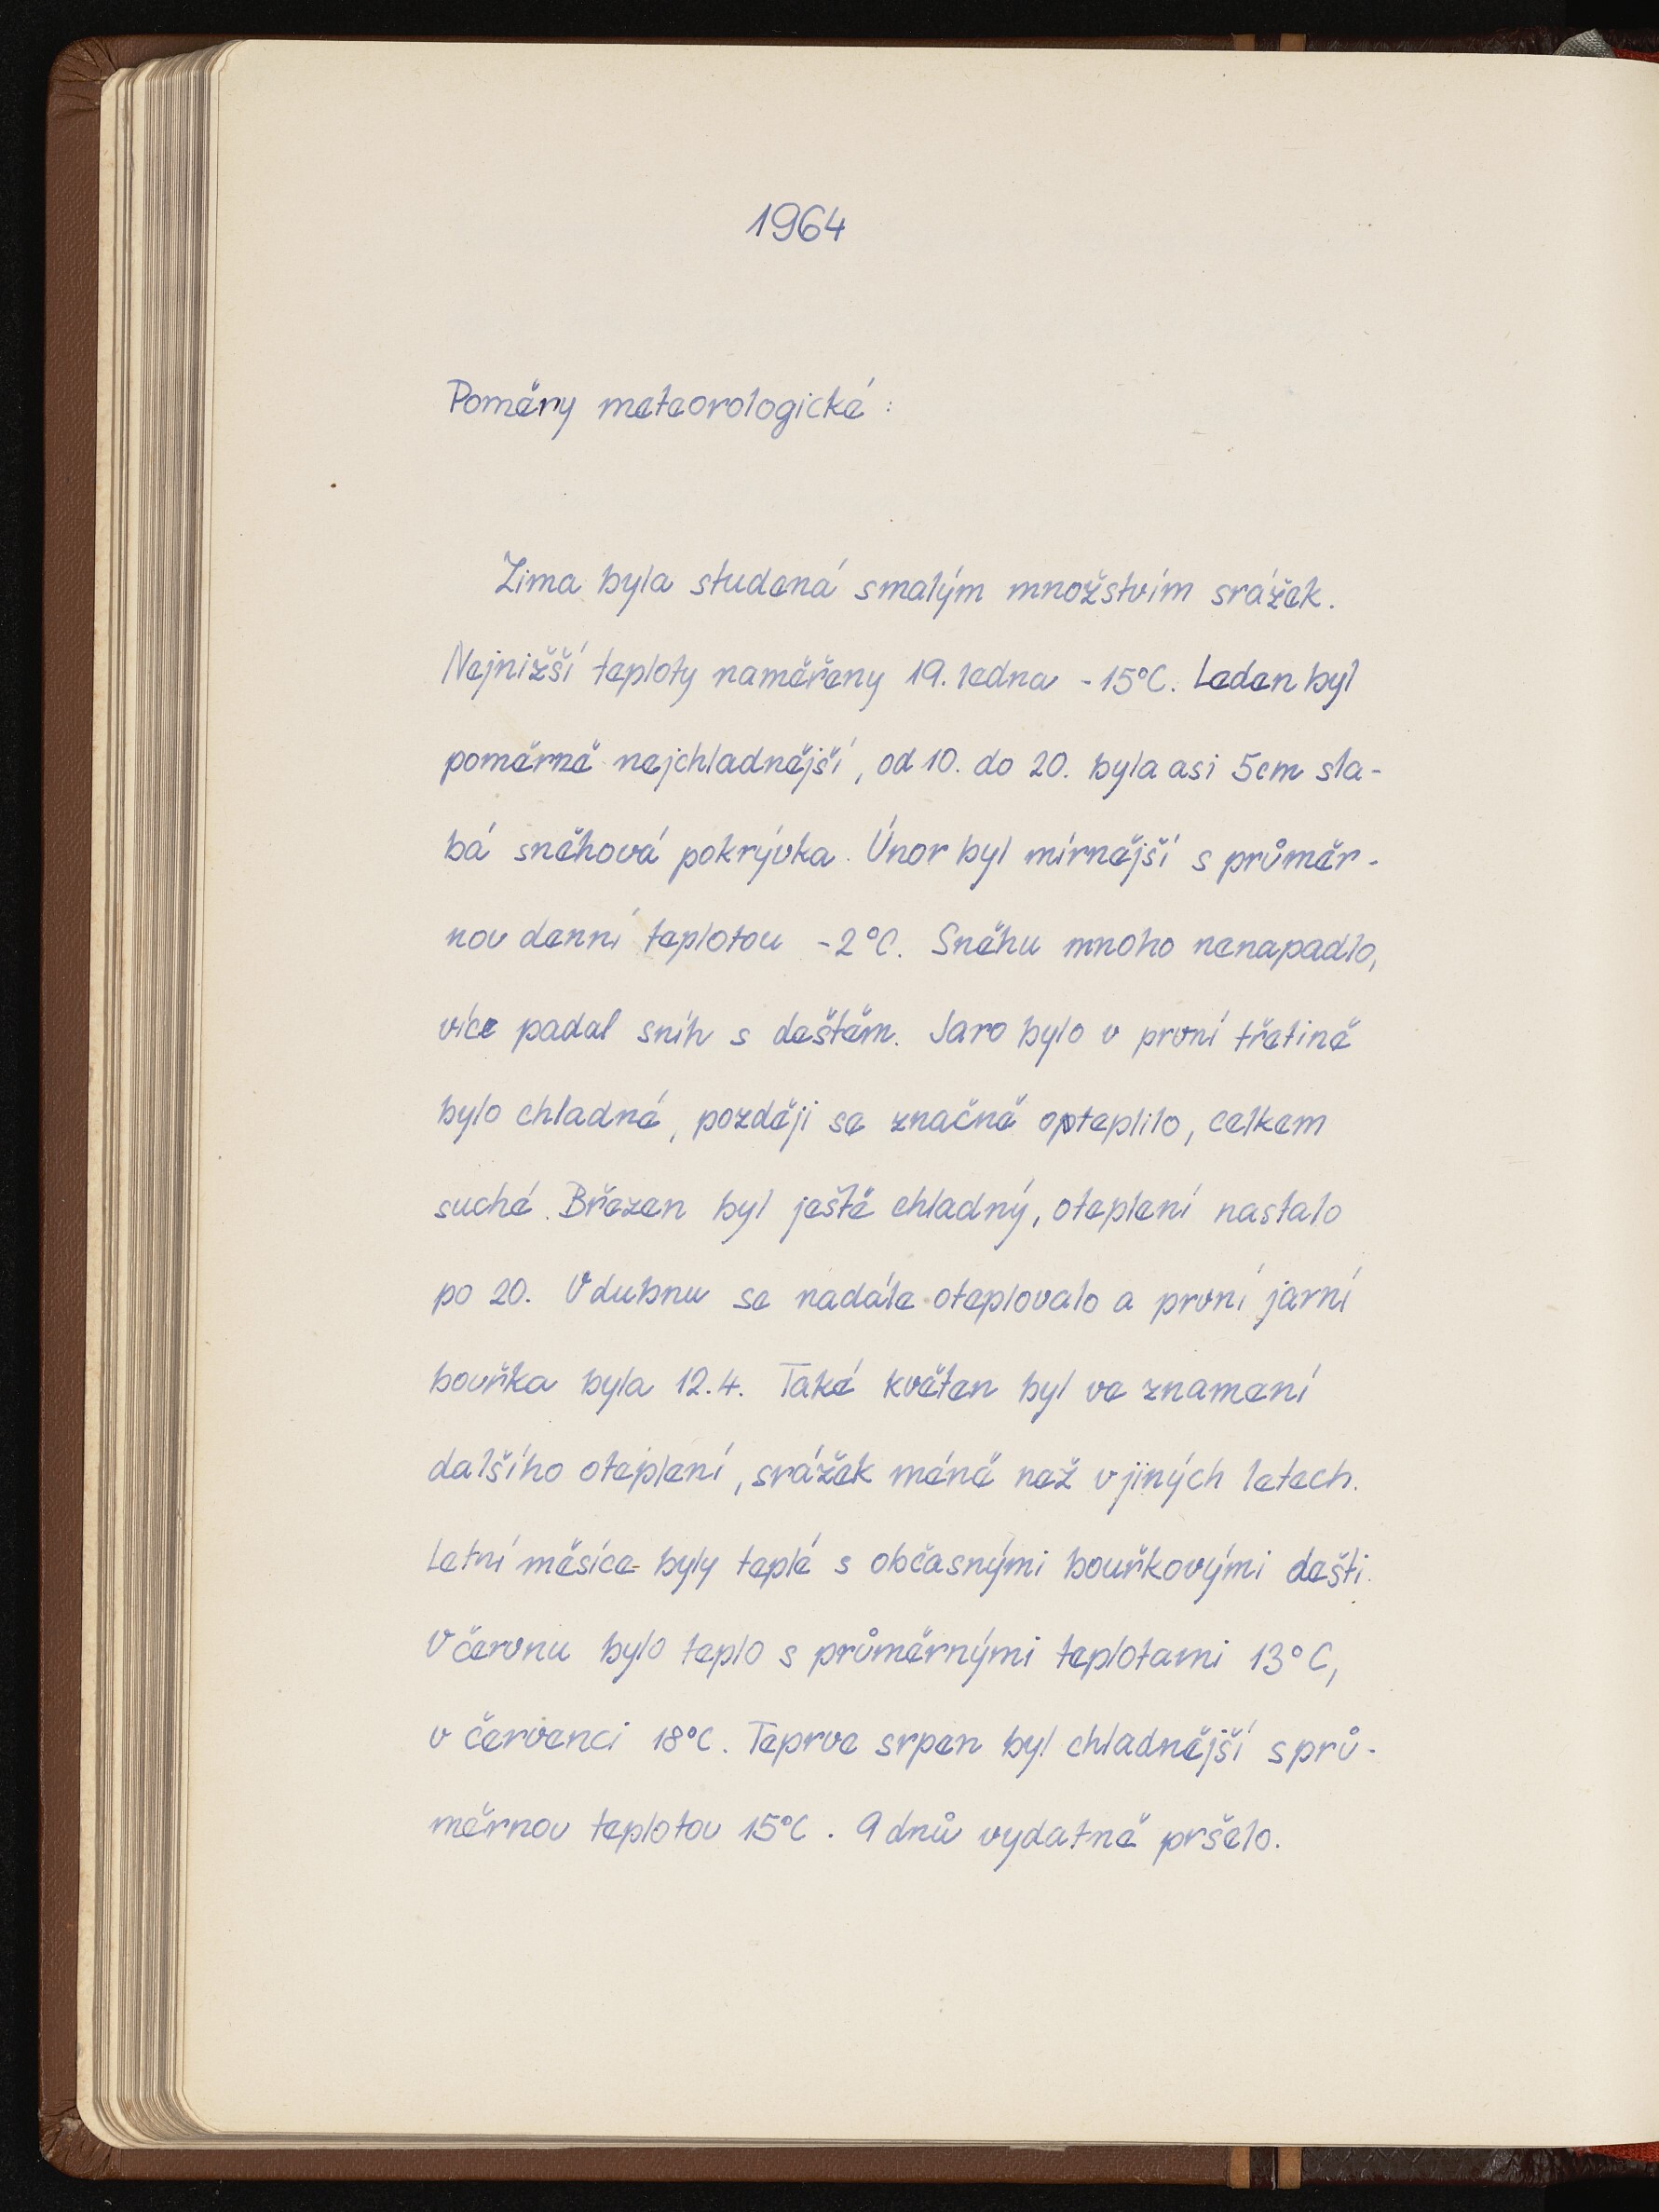 1964
Poměry meteorologické :
Zima byla studená smalým množstvím srážek.
Nejnižší teploty naměřeny 19. ledna -15°C. Leden byl
poměrně nejchladnější, od 10. do 20. byla asi 5cm sla-
bá sněhová pokrývka. Únor byl mírnější s průměr-
nou denní teplotou -2°C. Sněhu mnoho nenapadlo,
více padal sníh s deštěm. Jaro bylo v první třetině
bylo chladné, později se značně opteplilo, celkem
suché. Březen byl ještě chladný, oteplení nastalo
po 20. V dubnu se nadále oteplovalo a první jarní
bouřka byla 12.4. Také květen byl ve znamení
dalšího oteplení, srážek méně než v jiných letech.
Letní měsíce byly teplé s občasnými bouřkovými dešti.
V červnu bylo teplo s průměrnými teplotami 13°C,
v červenci 18°C. Teprve srpen byl chladnější s prů-
měrnou teplotou 15°C. 9 dnů vydatně pršelo.